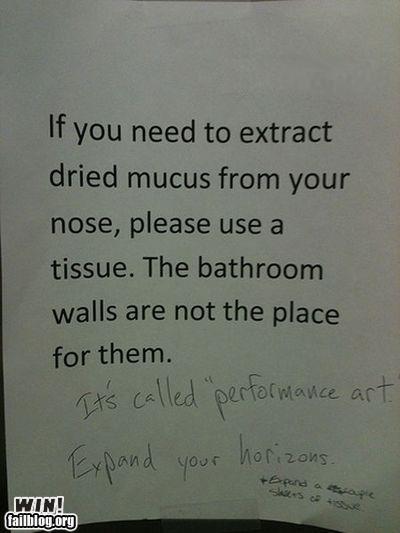 If you need to extract
dried mucus from your
nose, please use a
tissue. The bathroom
walls are not the place
for them.
It's called "performance art."
Expand your horizons.
*Expend a couple
sheets of tissue
WIN!
failblog.org